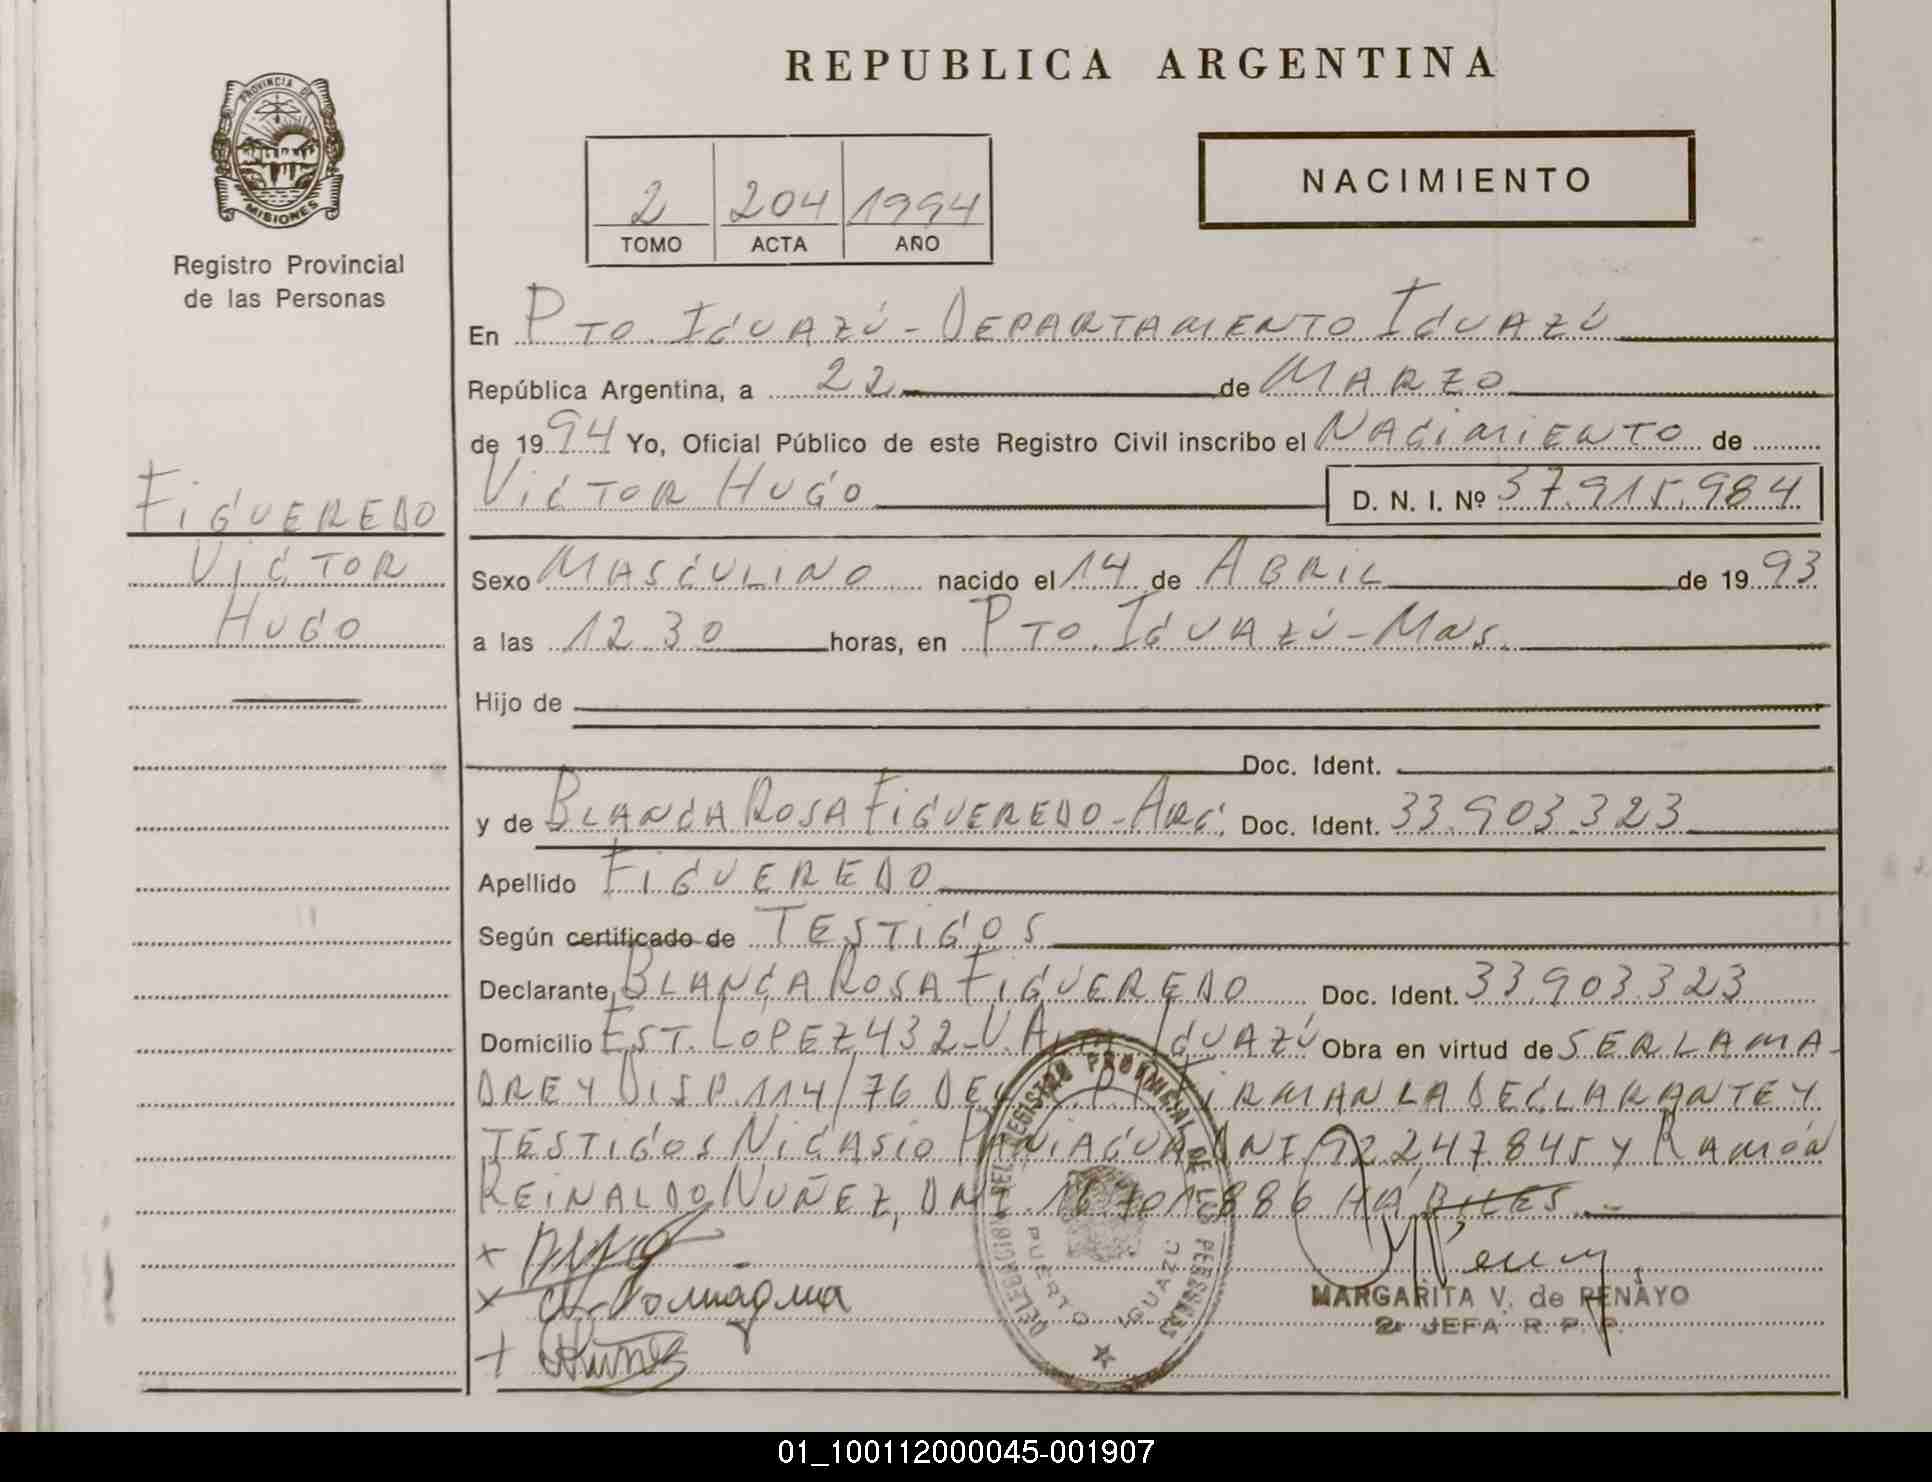 REPUBLICA ARGENTINA
PROVINCIA DE
MISIONES
Registro Provincial
de las Personas
2 204 1994
TOMO ACTA AÑO
NACIMIENTO
En PTO. IGUAZÚ - DEPARTAMENTO IGUAZÚ
República Argentina, a 22 de MARZO
de 1994 Yo, Oficial Público de este Registro Civil inscribo el NACIMIENTO de
VICTOR HUGO D. N. I. Nº 37.915.984
FIGUEREDO
VICTOR
HUGO
Sexo MASCULINO nacido el 14 de ABRIL de 1993
a las 12 30 horas, en PTO. IGUAZÚ - Mns.
Hijo de
Doc. Ident.
y de BLANCA ROSA FIGUEREDO - ARG. Doc. Ident. 33.903.323
Apellido FIGUEREDO
Según certificado de TESTIGOS
Declarante BLANCA ROSA FIGUEREDO Doc. Ident. 33.903.323
Domicilio EST. LOPEZ 432 - V. Alta IGUAZÚ Obra en virtud de SER LA MA-
DRE Y DISP. 114/76 DEL FIRMAN LA DECLARANTE Y
TESTIGOS NICASIO PANIAGUA DNI 92.247.845 Y RAMÓN
REINALDO NUÑEZ, DNI. 16.701.886 HÁBILES.-
DELEGACION DEL REGISTRO PROVINCIAL DE LAS PERSONAS
PUERTO IGUAZU
MARGARITA V. de PENAYO
2ª JEFA R. P. P.
01_100112000045-001907